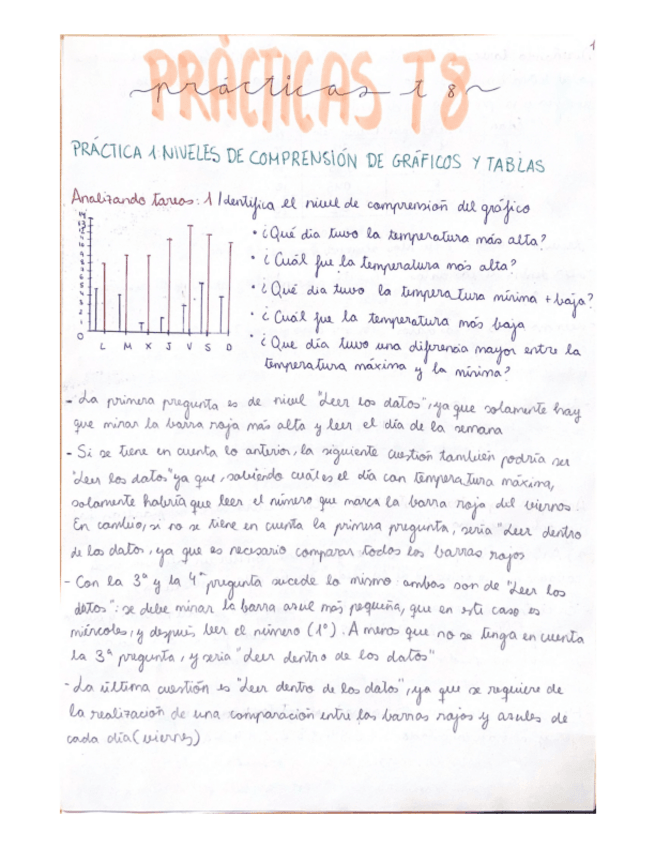 1
PRÁCTICAS T8
prácticas t 8
PRÁCTICA 1: NIVELES DE COMPRENSIÓN DE GRÁFICOS Y TABLAS
Analizando tareas: 1 Identifica el nivel de comprensión del gráfico
• ¿Qué día tuvo la temperatura más alta?
• ¿Cuál fue la temperatura más alta?
• ¿Qué dia tuvo la temperatura mínima + baja?
• ¿Cuál fue la temperatura más baja
• ¿Que día tuvo una diferencia mayor entre la
temperatura máxima y la mínima?
0
L M X J V S D
- La primera pregunta es de nivel "Leer los datos", ya que solamente hay
que mirar la barra roja más alta y leer el día de la semana
- Si se tiene en cuenta lo anterior, la siguiente cuestión también podría ser
"Leer los datos" ya que, sabiendo cuál es el día con temperatura máxima,
solamente habría que leer el número que marca la barra roja del viernes.
En cambio, si no se tiene en cuenta la primera pregunta, sería "Leer dentro
de los datos, ya que es necesario comparar todas las barras rojas
- Con la 3ª y la 4ª pregunta sucede lo mismo ambas son de "Leer los
datos": se debe mirar la barra azul más pequeña, que en este caso es
miércoles, y después leer el número (1º). A menos que no se tenga en cuenta
la 3ª pregunta, y sería "Leer dentro de los datos"
- La última cuestión es "Leer dentro de los datos", ya que se requiere de
la realización de una comparación entre las barras rojas y azules de
cada día (viernes)